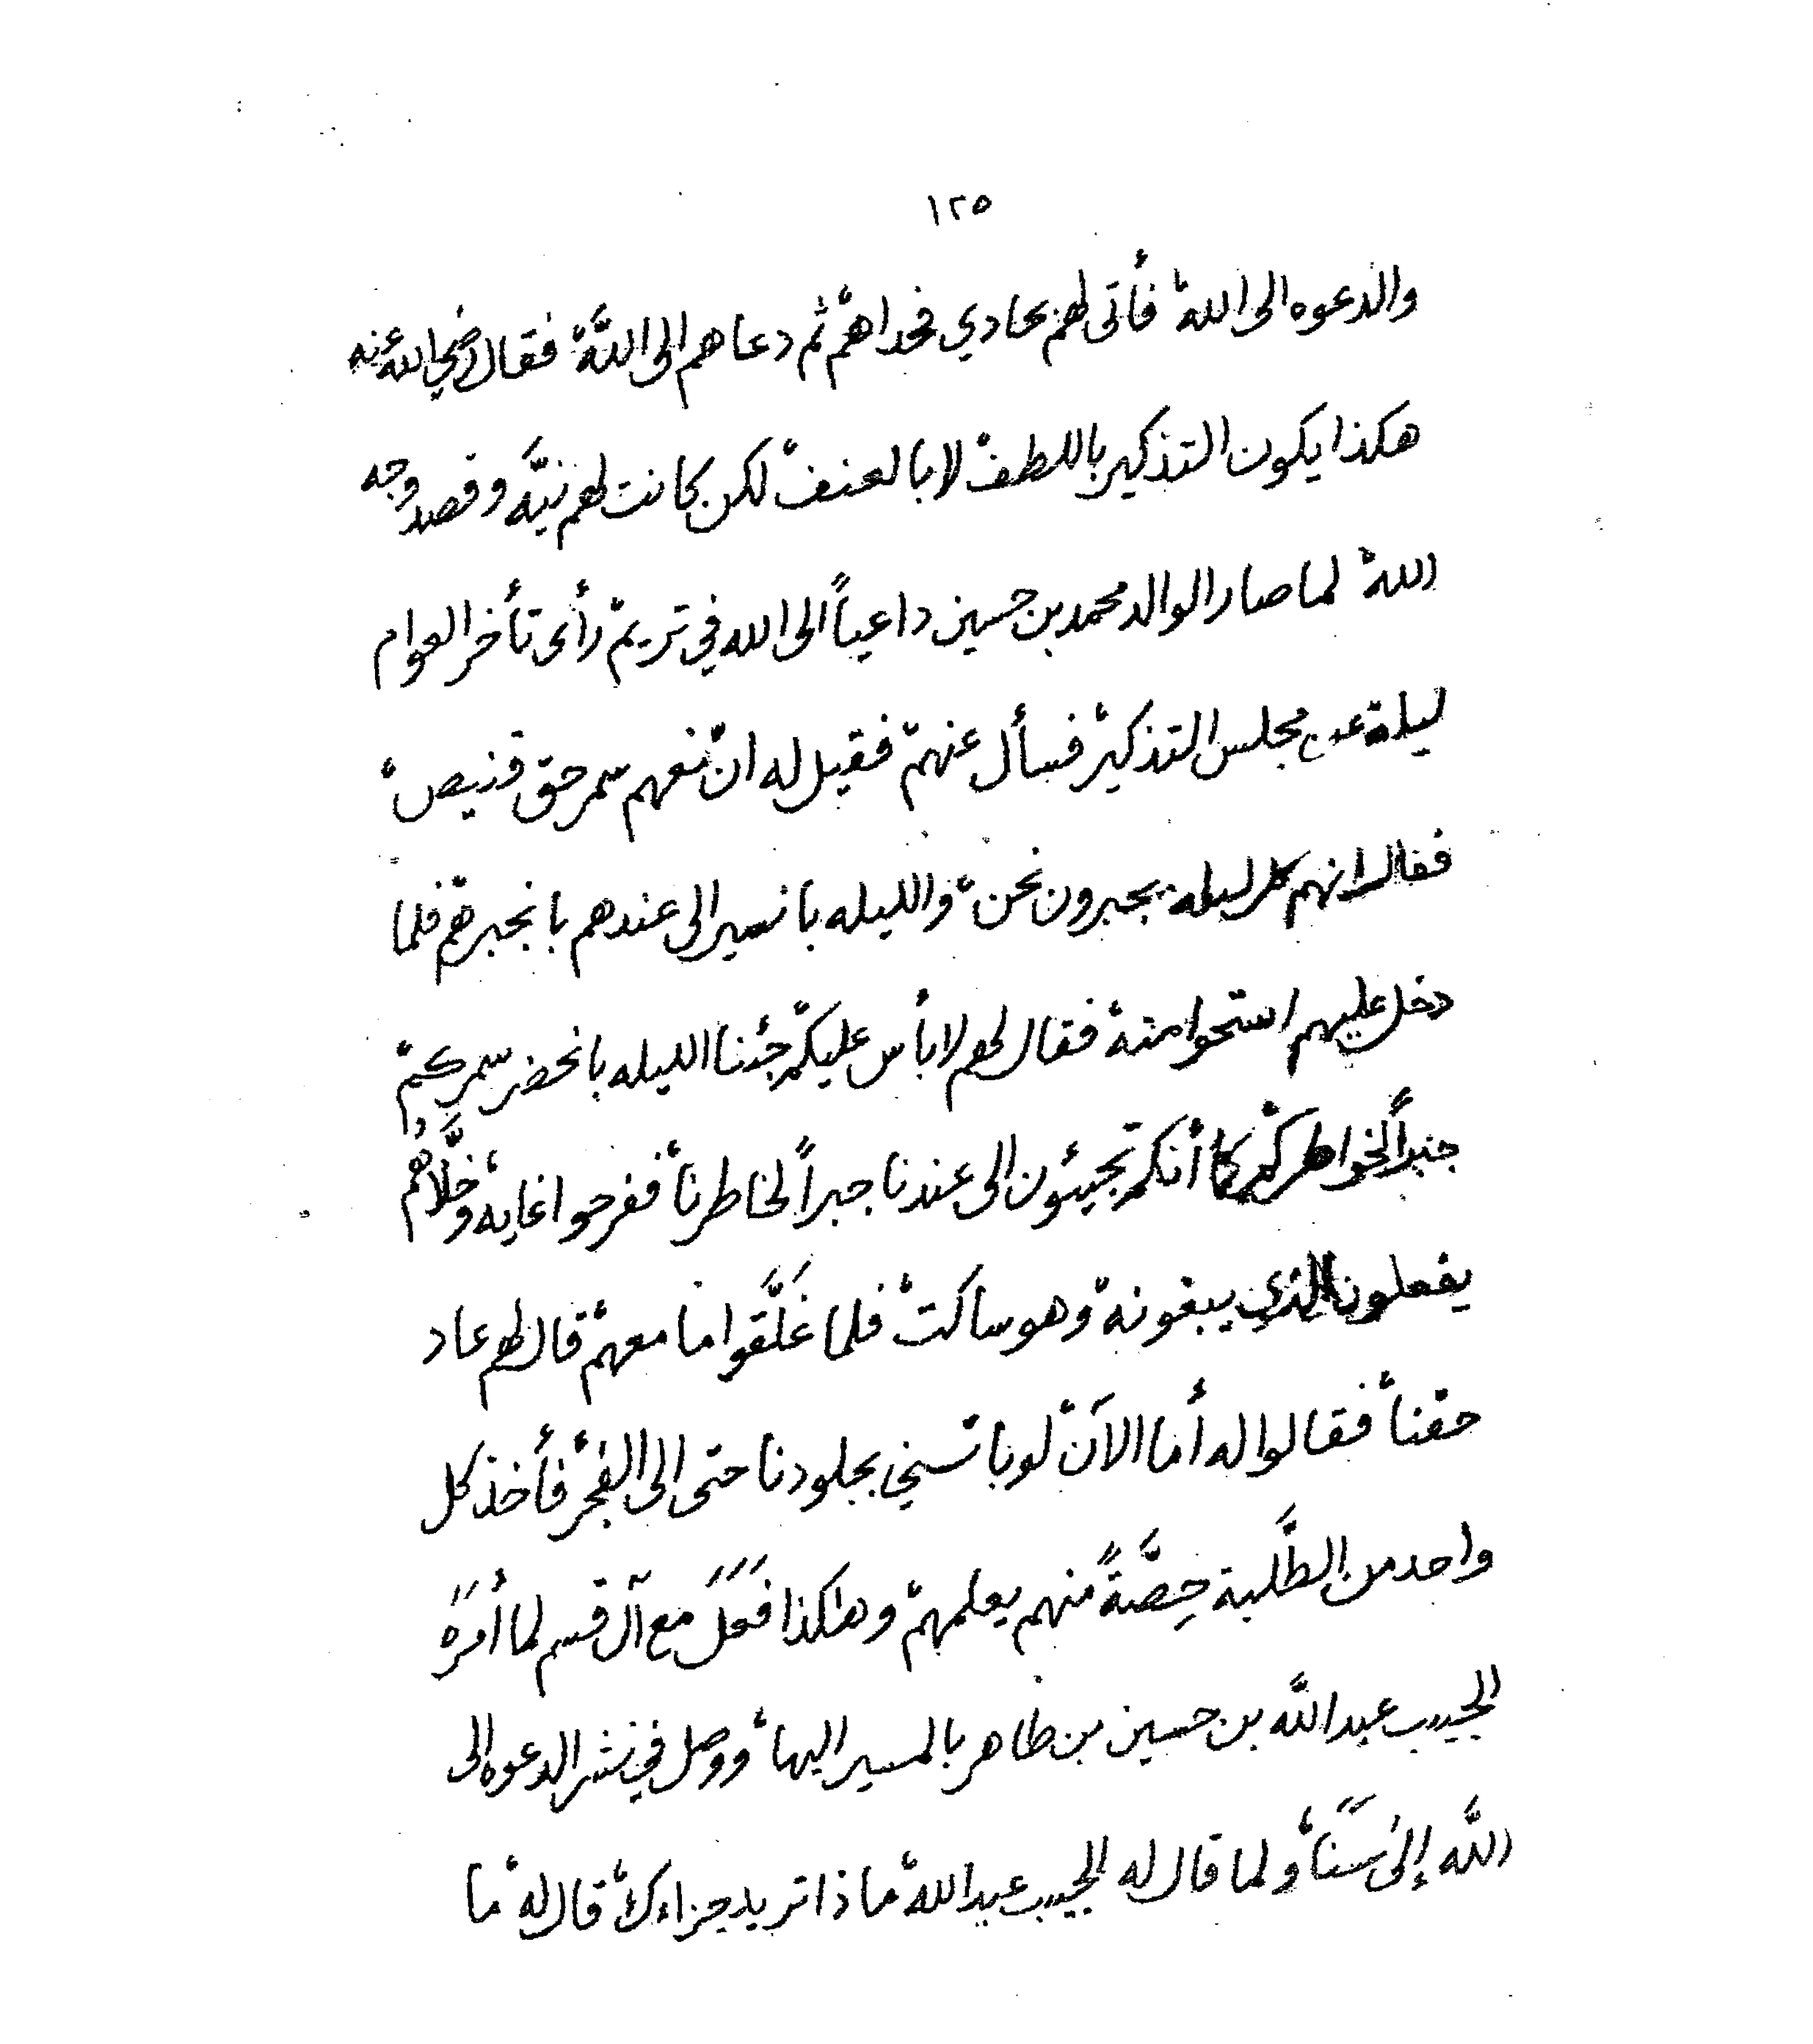 ١٢٥
والدعوه الى الله، فأتى لهم بحادي فحداهم، ثم دعاهم الى اللَّه، فقال رضي الله عنه
هكذا يكون التذكير باللطف، لا بالعنف، لكن كانت لهم نيَّه وقصد وجه
الله، لما صار الوالد محمد بن حسين داعياً الى الله في تريم، رأى تأخر العوام
ليلة عن مجلس التذكير، فسأل عنهم، فقيل له ان معهم سمر حق قنيص،
فقال انهم كل ليله يجبرون نحن، والليله بانسير الى عندهم بانجبرهم، فلما
دخل عليهم استحوا منه، فقال لهم لا بأس عليكم، جئنا الليله بانحضر سمركم،
جبراً لخواطركم، كما أنكم تجيئون الى عندنا جبراً لخاطرنا، ففرحوا غايه، وخلَّاهُم
يفعلون الذي يبغونه، وهو ساكت، فلما غَلَّقوا ما معهم، قال لهم عاد
حقنا، فقالوا له أما الآن، لو باتسني بجلودنا حتى الى الفجر، فأخذ كل
واحد من الطَّلبة حِصَّةً منهم يعلمهم، وهاكذا فَعَلَ مع آل قسم لما أمَرَه
الحبيب عبد اللَّه بن حسين بن طاهر بالمسير اليها، ووصل في نشر الدعوه الى
اللَّه إلى سَنَا، ولما قال له الحبيب عبد الله، ماذا تريد جزاءك، قال له، ما